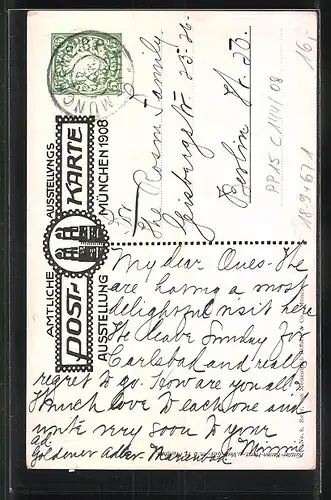 AMTLICHE AUSSTELLUNGS
POST-KARTE
AUSSTELLUNG MÜNCHEN 1908
MÜNCHEN
The Rosin Family
Geisbergstr 25-26-
Berlin W. 23.
16,-
PP15 C111/08
189+671
My dear Ones- We
are having a most
delightful visit here
We leave Sunday for
Carlsbad and really
regret to go. How are you all?
Much love to each one and
write very soon to your
ad. Minnie
Goldener Adler-Marienbad